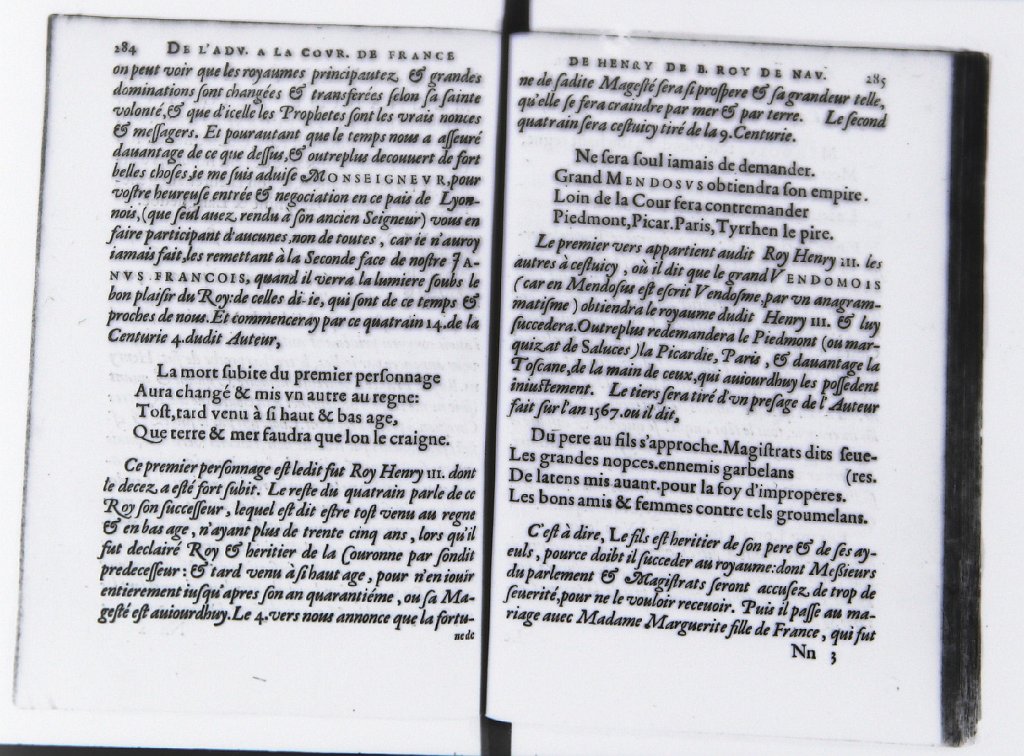 284 DE L'ADV. A LA COVR. DE FRANCE
on peut voir que les royaumes principautez & grandes
dominations sont changées & transferées selon sa sainte
volonté, & que d'icelle les Prophetes sont les vrais nonces
& messagers. Et pourautant que le temps nous a asseuré
dauantage de ce que dessus, & outreplus decouuert de fort
belles choses, ie me suis aduisé MONSEIGNEVR, pour
vostre heureuse entrée & negociation en ce païs de Lyon-
nois, (que seul auez rendu à son ancien Seigneur) vous en
faire participant d'aucunes, non de toutes, car ie n'auroy
iamais fait, les remettant à la Seconde face de nostre IA-
NVS FRANCOIS, quand il verra la lumiere soubs le
bon plaisir du Roy: de celles di-ie, qui sont de ce temps &
proches de nous. Et commenceray par ce quatrain 14. de la
Centurie 4. dudit Auteur,
La mort subite du premier personnage
Aura changé & mis vn autre au regne:
Tost, tard venu à si haut & bas age,
Que terre & mer faudra que lon le craigne.
Ce premier personnage est ledit fut Roy Henry III. dont
le decez a esté fort subit. Le reste du quatrain parle de ce
Roy son successeur, lequel est dit estre tost venu au regne
& en bas age, n'ayant plus de trente cinq ans, lors qu'il
fut declairé Roy & heritier de la Couronne par sondit
predecesseur: & tard venu à si haut age, pour n'en iouir
entierement iusqu'apres son an quarantiéme, ou sa Ma-
gesté est auiourdhuy. Le 4. vers nous annonce que la fortu-
ne de
DE HENRY DE B. ROY DE NAV. 285
ne de sadite Magesté sera si prospere & sa grandeur telle,
qu'elle se fera craindre par mer & par terre. Le second
quatrain sera cestuicy tiré de la 9. Centurie.
Ne sera soul iamais de demander.
Grand MENDOSVS obtiendra son empire.
Loin de la Cour fera contremander
Piedmont, Picar. Paris, Tyrrhen le pire.
Le premier vers appartient audit Roy Henry III. les
autres à cestuicy, où il dit que le grand VENDOMOIS
(car en Mendosus est escrit Vendosme, par vn anagram-
matisme) obtiendra le royaume dudit Henry III. & luy
succedera. Outreplus redemandera le Piedmont (ou mar-
quizat de Saluces) la Picardie, Paris, & dauantage la
Toscane, de la main de ceux, qui auiourdhuy les possedent
iniustement. Le tiers sera tiré d'vn presage de l'Auteur
fait sur l'an 1567. ou il dit,
Du pere au fils s'approche. Magistrats dits seue-
Les grandes nopces. ennemis garbelans (res.
De latens mis auant. pour la foy d'improperes.
Les bons amis & femmes contre tels groumelans.
C'est à dire, Le fils est heritier de son pere & de ses ay-
euls, pource doibt il succeder au royaume: dont Meßieurs
du parlement & Magistrats seront accusez, de trop de
seuerité, pour ne le vouloir receuoir. Puis il passe au ma-
riage auec Madame Marguerite fille de France, qui fut
Nn 3